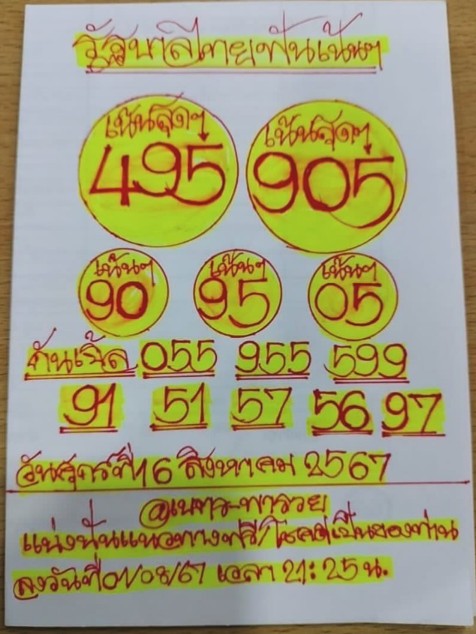 รัฐบาลไทยฟันเน้นๆ
เน้นสุดๆ เน้นสุดๆ
495 905
เน้นๆ เน้นๆ เน้นๆ
90 95 05
กันเบิ้ล 055 955 599
91 51 57 56 97
วันศุกร์ที่ 16 สิงหาคม 2567
@เนทร-พารวย
แบ่งปันแนวทางฟรี/โชคดีเป็นของท่าน
ลงวันที่ 01/08/67 เวลา 21:25 น.